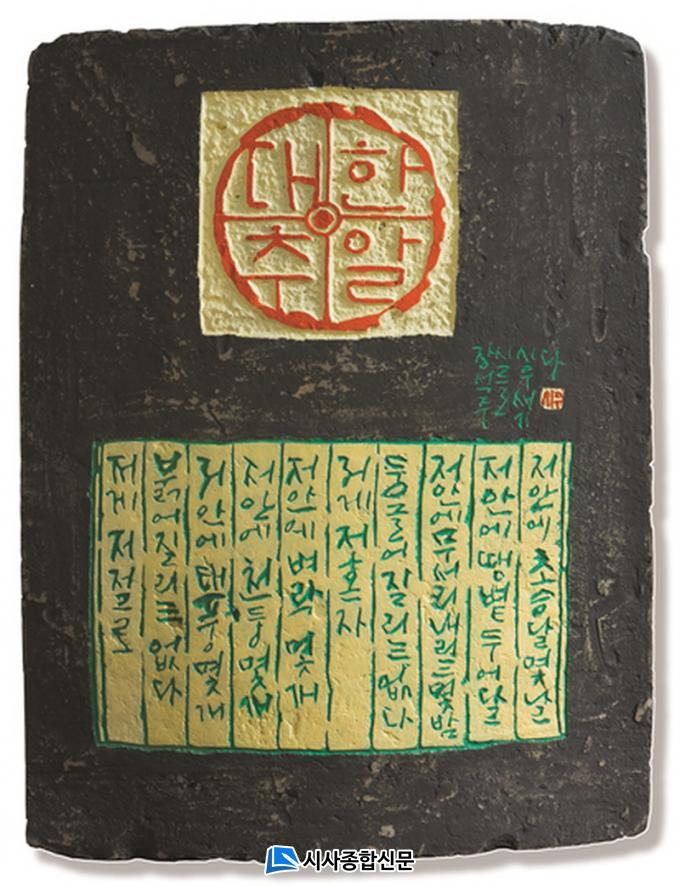 대추
한알
장석주
시우새기
다
저안에 초승달 몇날
저안에 땡볕 두어달
저안에 무서리 내리는 몇밤
둥글어 질리는 없다
저게 저혼자
저안에 벼락 몇개
저안에 천둥 몇개
저안에 태풍 몇개
붉어질리는 없다
저게 저절로
시사종합신문